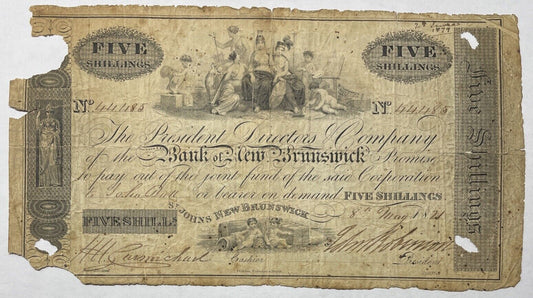 FIVE
SHILLINGS
FIVE
SHILLINGS
No. 44485
No. 44485
The President Directors & Company
of the Bank of New Brunswick Promise
to pay out of the joint fund of the said Corporation
to John or bearer on demand FIVE SHILLINGS
ST JOHNS NEW BRUNSWICK
FIVE SHILL
8th 18
Cashier
President
Five Shillings